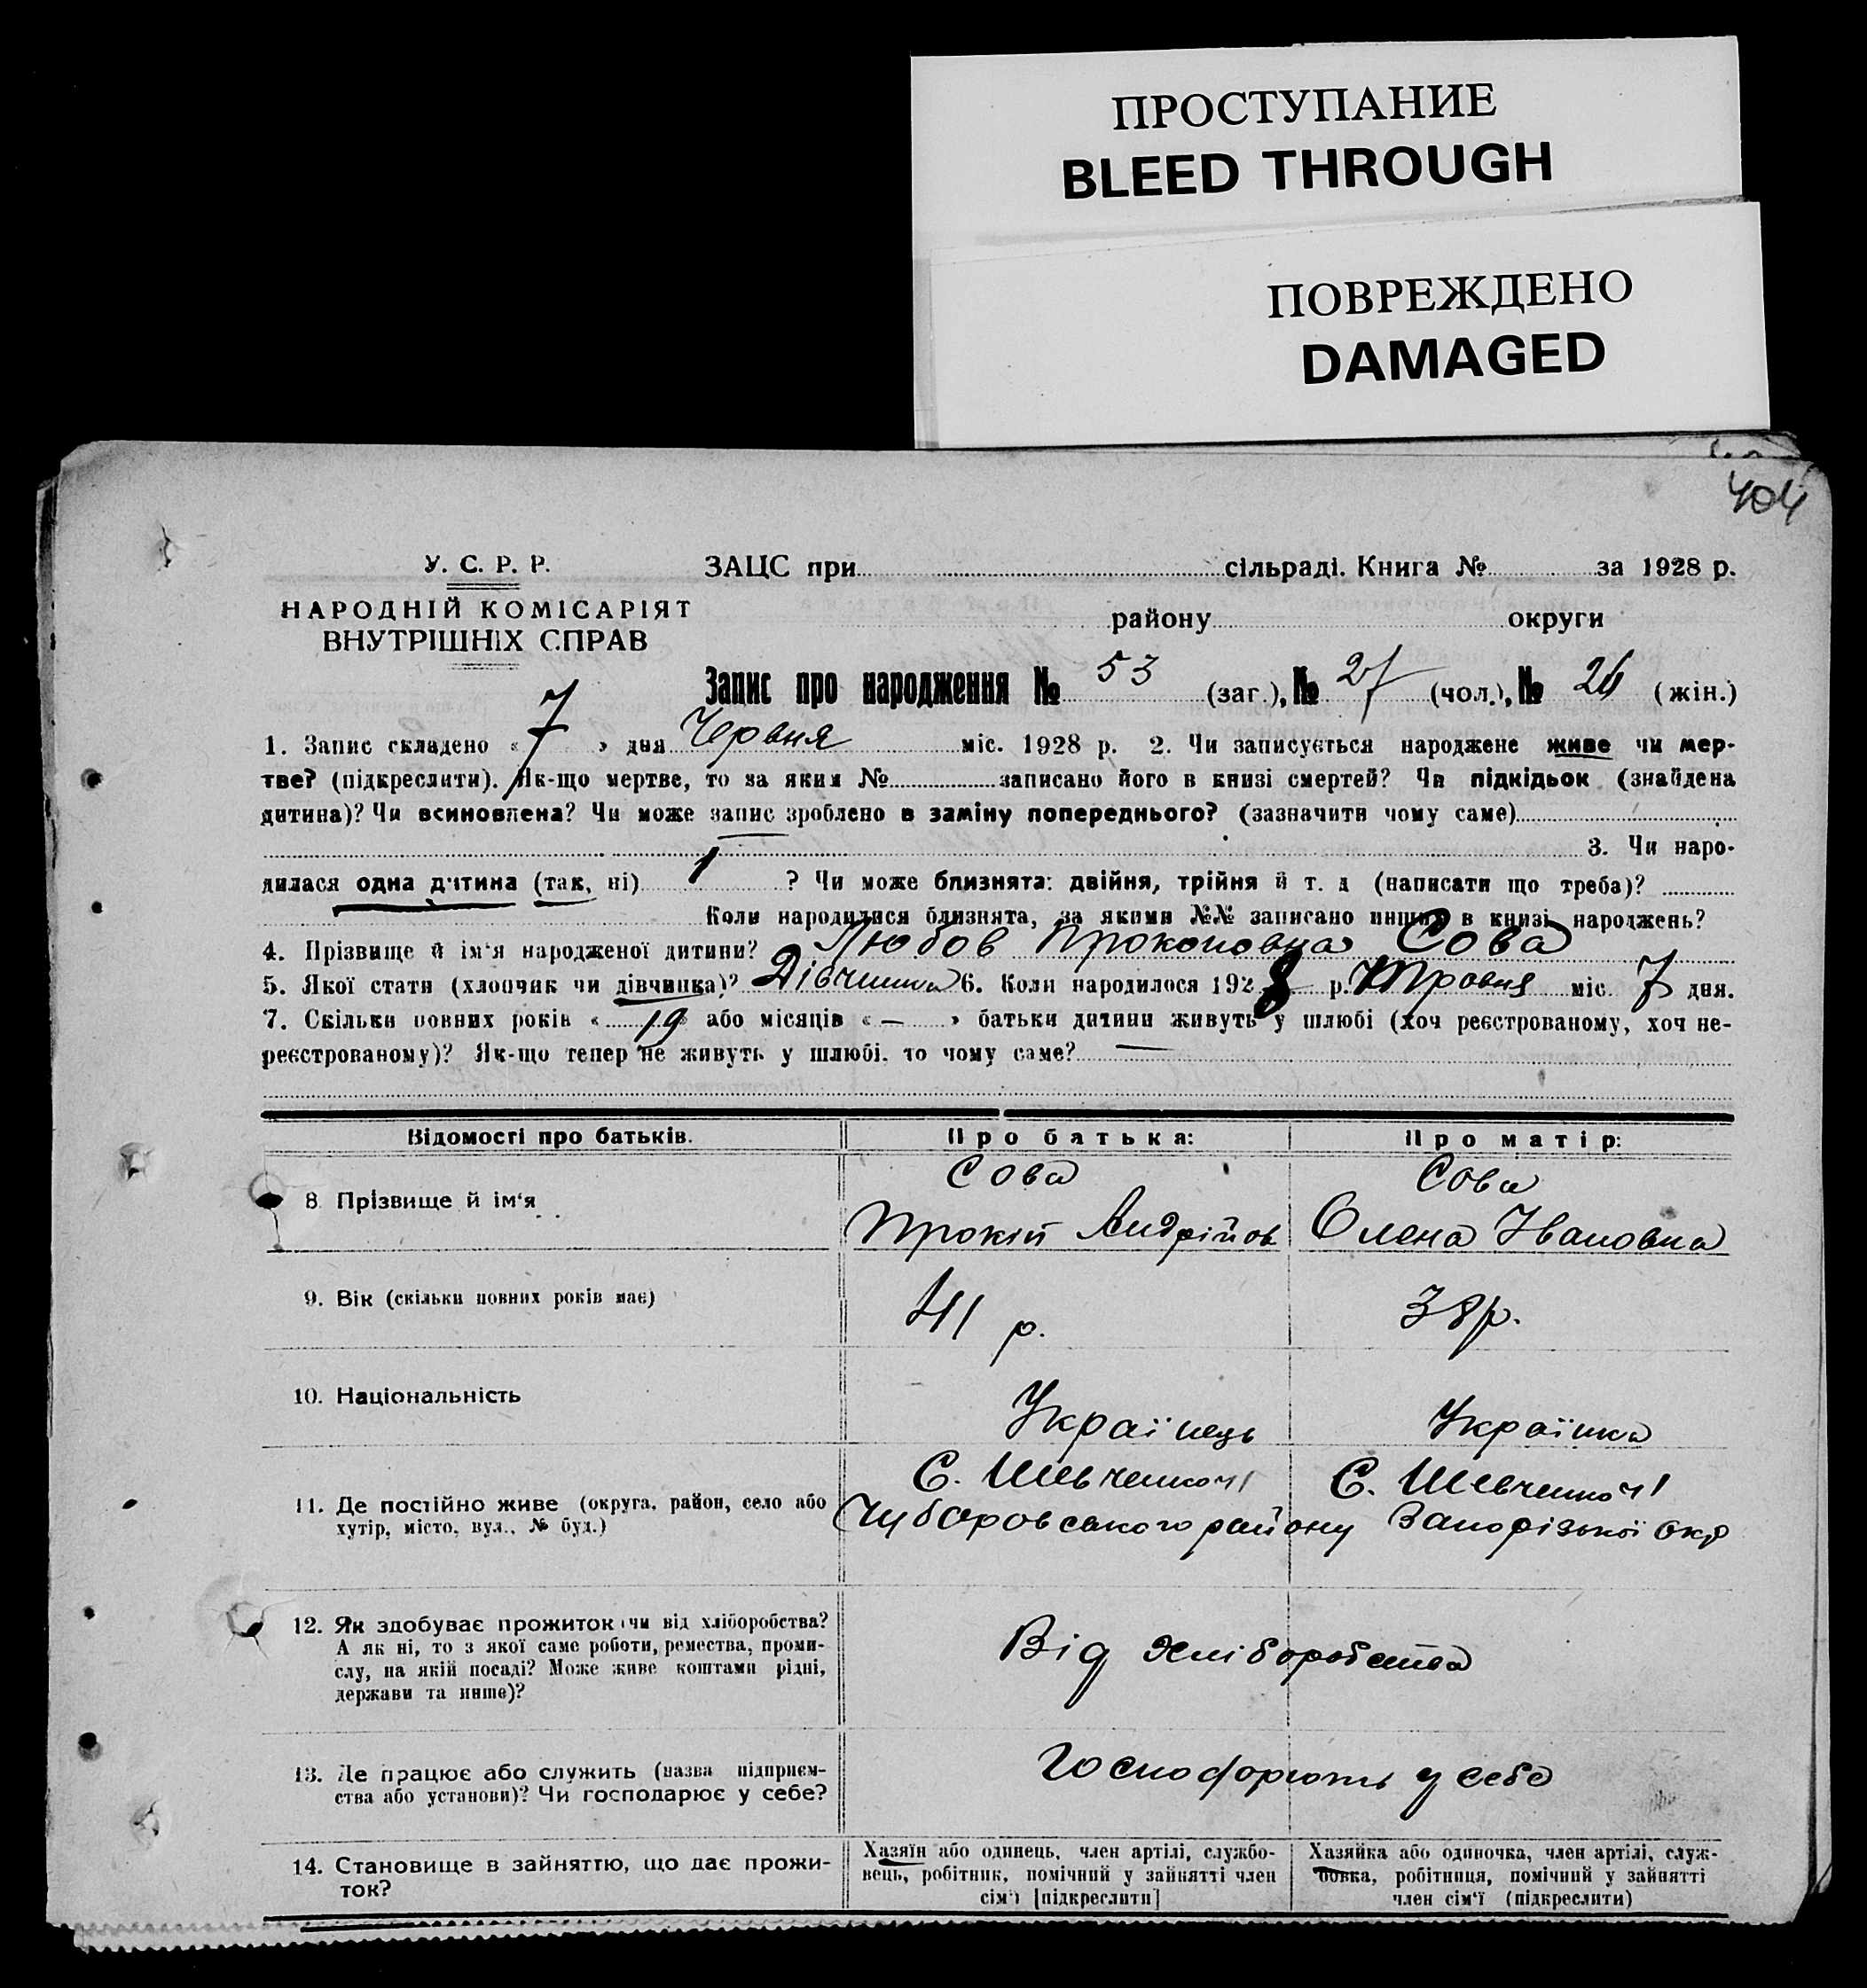 ПРОСТУПАНИЕ
BLEED THROUGH
ПОВРЕЖДЕНО
DAMAGED
404
У. С. Р. Р.
НАРОДНІЙ КОМІСАРІЯТ
ВНУТРІШНІХ СПРАВ
ЗАЦС при сільраді. Книга № за 1928 р.
району округи
Запис про народження № 53 (заг.), № 27 (чол.), № 26 (жін.)
1. Запис складено « 7 » дня Червня міс. 1928 р. 2. Чи записується народжене живе чи мер-
тве? (підкреслити). Як-що мертве, то за яким № записано його в книзі смертей? Чи підкідьок (знайдена
дитина)? Чи всиновлена? Чи може запис зроблено в заміну попереднього? (зазначити чому саме)
3. Чи наро-
дилася одна дитина (так, ні) 1 ? Чи може близнята: двійня, трійня й т. д (написати що треба)?
Коли народилися близнята, за якими №№ записано инших в книзі народжень?
4. Прізвище й ім‘я народженої дитини? Любов Прокоповна Сова
5. Якої стати (хлопчик чи дівчинка)? Дівчинка 6. Коли народилося 1928 р. Травня міс. 7 дня.
7. Скільки повних років « 19 » або місяців « — » батьки дитини живуть у шлюбі (хоч реєстрованому, хоч не-
реєстрованому)? Як-що тепер не живуть у шлюбі, то чому саме? —
Відомості про батьків. Про батька: Про матір:
8 Прізвище й ім‘я Сова Прокіп Андрійов Сова Олена Івановна
9. Вік (скільки повних років має) 41 р. 38 р.
10. Національність Українець Українка
11. Де постійно живе (округа, район, село або
хутір, місто, вул., № буд.)
С. Шевченкочі С. Шевченкочі
Чубаровського району Запорізької окр
12. Як здобуває прожиток (чи від хліборобства?
А як ні, то з якої саме роботи, ремества, проми-
слу, на якій посаді? Може живе коштами рідні,
держави та инше)?
Від хліборобства
13. Де працює або служить (назва підприєм-
ства або установи)? Чи господарює у себе?
Господорюють у себе
14. Становище в зайняттю, що дає прожи-
ток?
Хазяїн або одинець, член артілі, службо-
вець, робітник, помічний у зайнятті член
сім‘ї [підкреслити]
Хазяйка або одиночка, член артілі, служ-
бовка, робітниця, помічний у зайнятті
член сім‘ї (підкреслити)